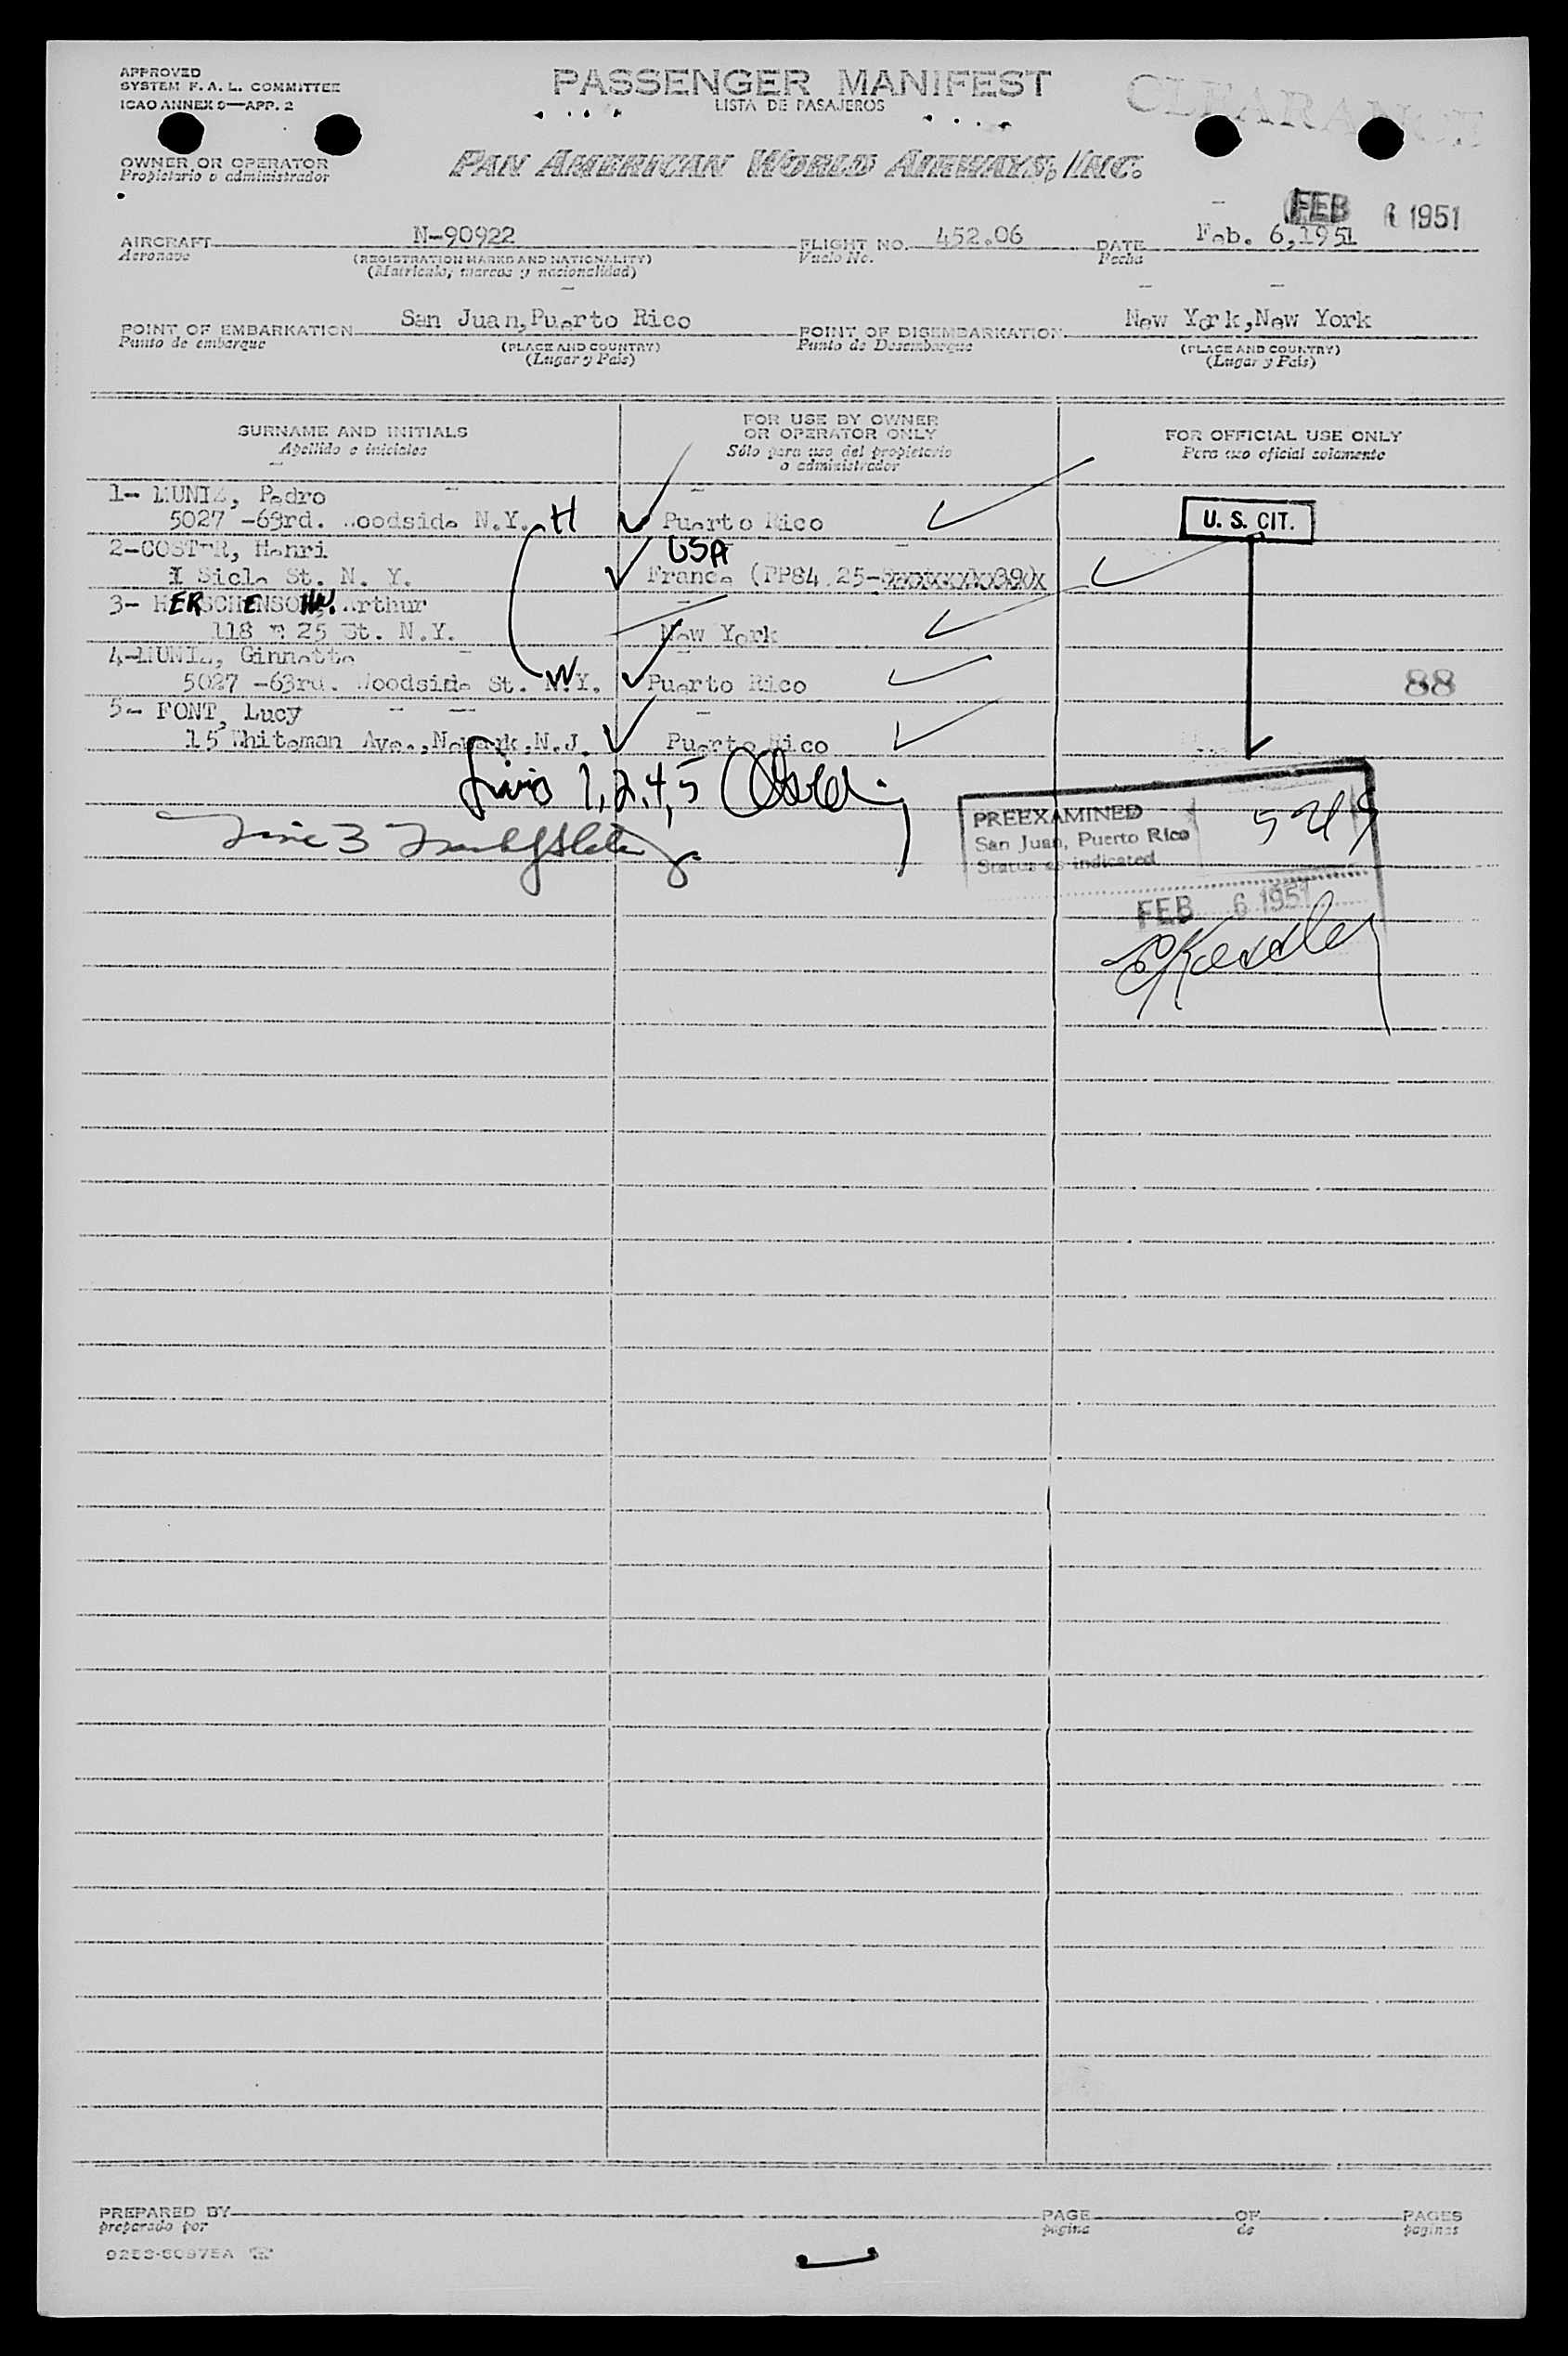 APPROVED
SYSTEM F. A. L. COMMITTEE
ICAO ANNEX 9—APP. 2
PASSENGER MANIFEST
LISTA DE PASAJEROS
CLEARANCE
OWNER OR OPERATOR
Propietario o administrador
PAN AMERICAN WORLD AIRWAYS, INC.
FEB 6 1951
AIRCRAFT N-90922 FLIGHT NO. 452.06 DATE Feb. 6,1951
Aeronave (REGISTRATION MARKS AND NATIONALITY) Vuelo No. Fecha
(Matrícula, marcas y nacionalidad)
POINT OF EMBARKATION San Juan,Puerto Rico POINT OF DISEMBARKATION New York,New York
Punto de embarque (PLACE AND COUNTRY) Punto de Desembarque (PLACE AND COUNTRY)
(Lugar y País) (Lugar y País)
SURNAME AND INITIALS
Apellido e iniciales
FOR USE BY OWNER
OR OPERATOR ONLY
Sólo para uso del propietario
o administrador
FOR OFFICIAL USE ONLY
Para uso oficial solamente
1- MUNIZ, Pedro
5027 -63rd. Woodside N.Y. H Puerto Rico U. S. CIT.
2-COSTER, Henri USA
1 Sicle St. N. Y. France (PP84 25-
3- HERSCHENSOHN. Arthur
118 E 25 St. N.Y. New York
4-MUNIZ, Ginnette
5027 -63rd. Woodside St. N.Y. W Puerto Rico 88
5- FONT, Lucy
15 Whiteman Ave.,Newark.N.J. Puerto Rico
1,2,4,5
Line 3
PREEXAMINED
San Juan, Puerto Rico
Status as indicated
FEB 6 1951
PREPARED BY PAGE OF PAGES
preparado por página de páginas